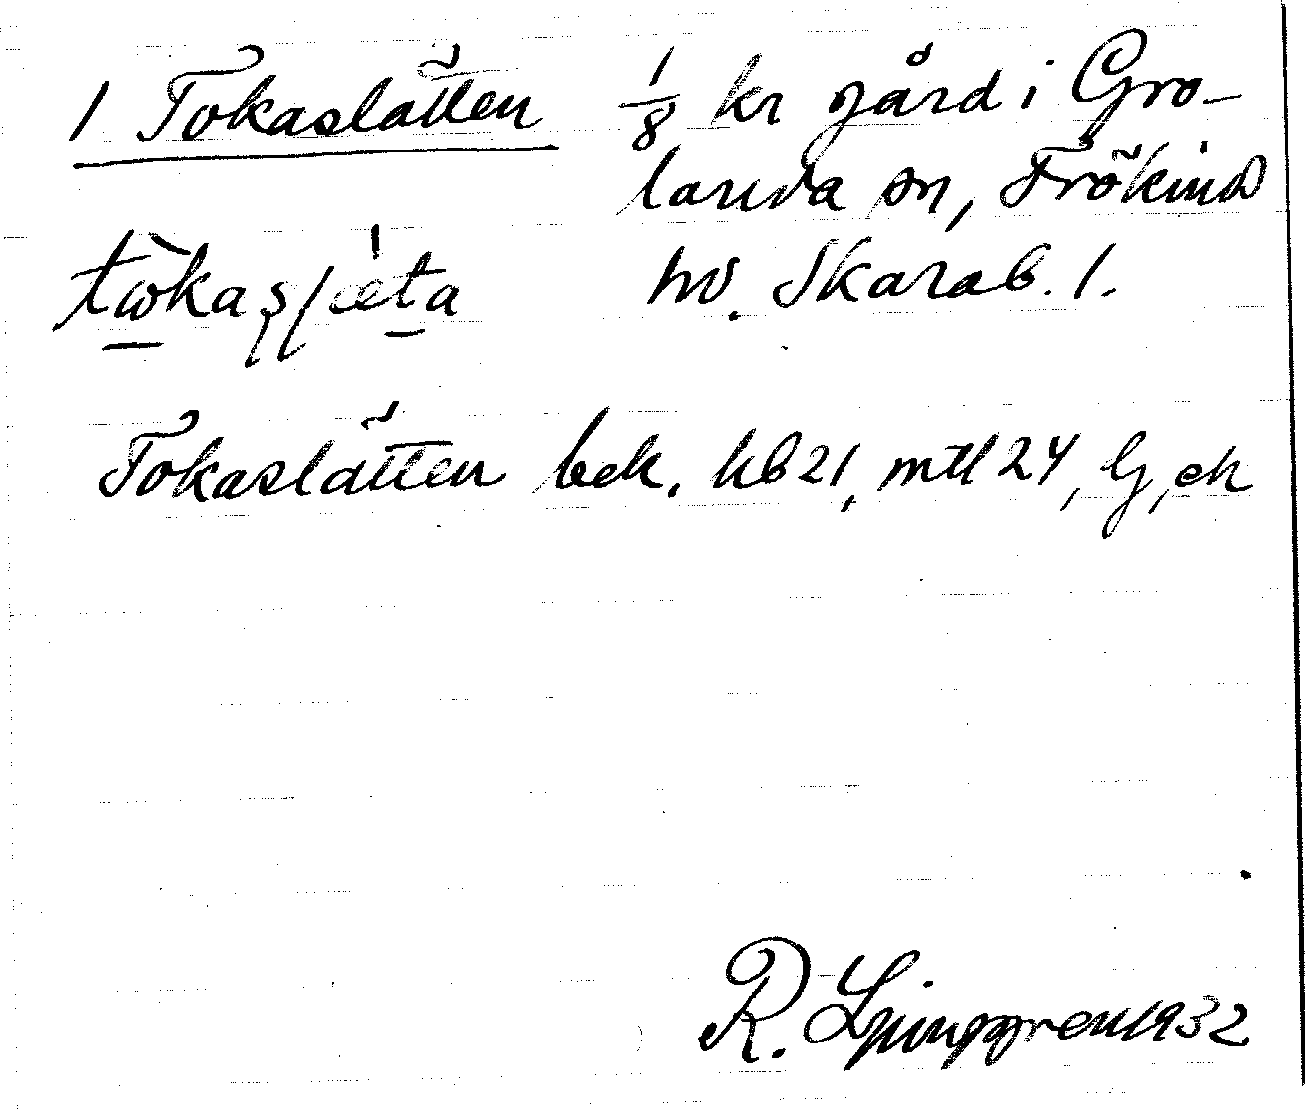 1 Tokaslätten 1/8 kr gård i Gro-
landa sn, Frökind
hd. Skarab. l.
Tokaslätten bek. kb 21, mtl 24, lj, ek
R. Ljunggren 1932